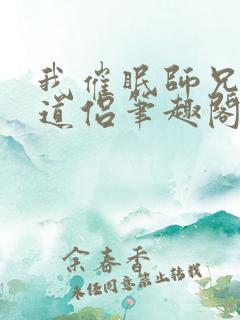 我催眠師兄
道侶筆趣閣
余春香
未经同意禁止转载